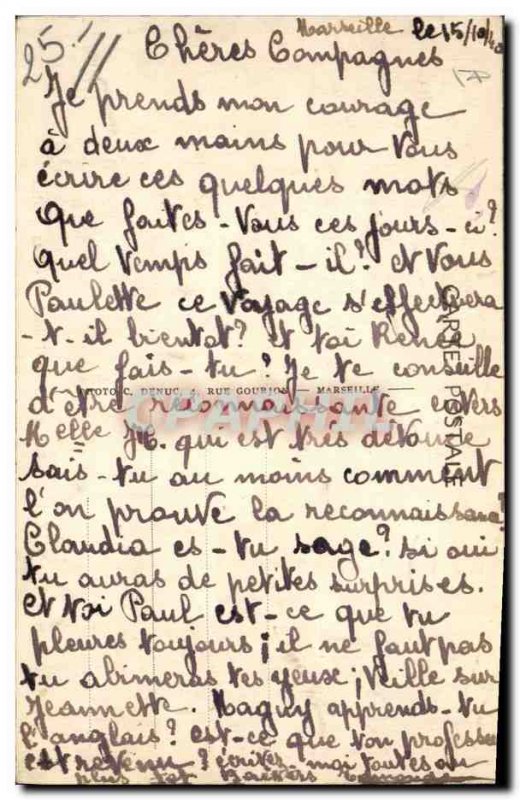 Marseille le 15/10/40
25.
Chères Compagnes
Je prends mon courage
à deux mains pour vous
écrire ces quelques mots
Que faites-vous ces jours-ci?
Quel temps fait-il? et vous
Paulette ce voyage s'effectuera
-t-il bientot? et toi Renée
que fais-tu? Je te conseille
PHOTO C. DENUC, 4, RUE GOURJOS — MARSEILLE
d'etre reconnaissante envers
CPAPHIL
Melle M. qui est très dévouée
sais-tu au moins comment
l'on prouve la reconnaissance?
Claudia es-tu sage? si oui
tu auras de petites surprises.
et toi Paul est-ce que tu
pleures toujours; il ne faut pas
tu abimeras tes yeux; Veille sur
Jeannette. Maguy apprends-tu
l'anglais? est-ce que ton professeur
est revenu? écrites-moi toutes au
plus tot Baisers
CARTE POSTALE